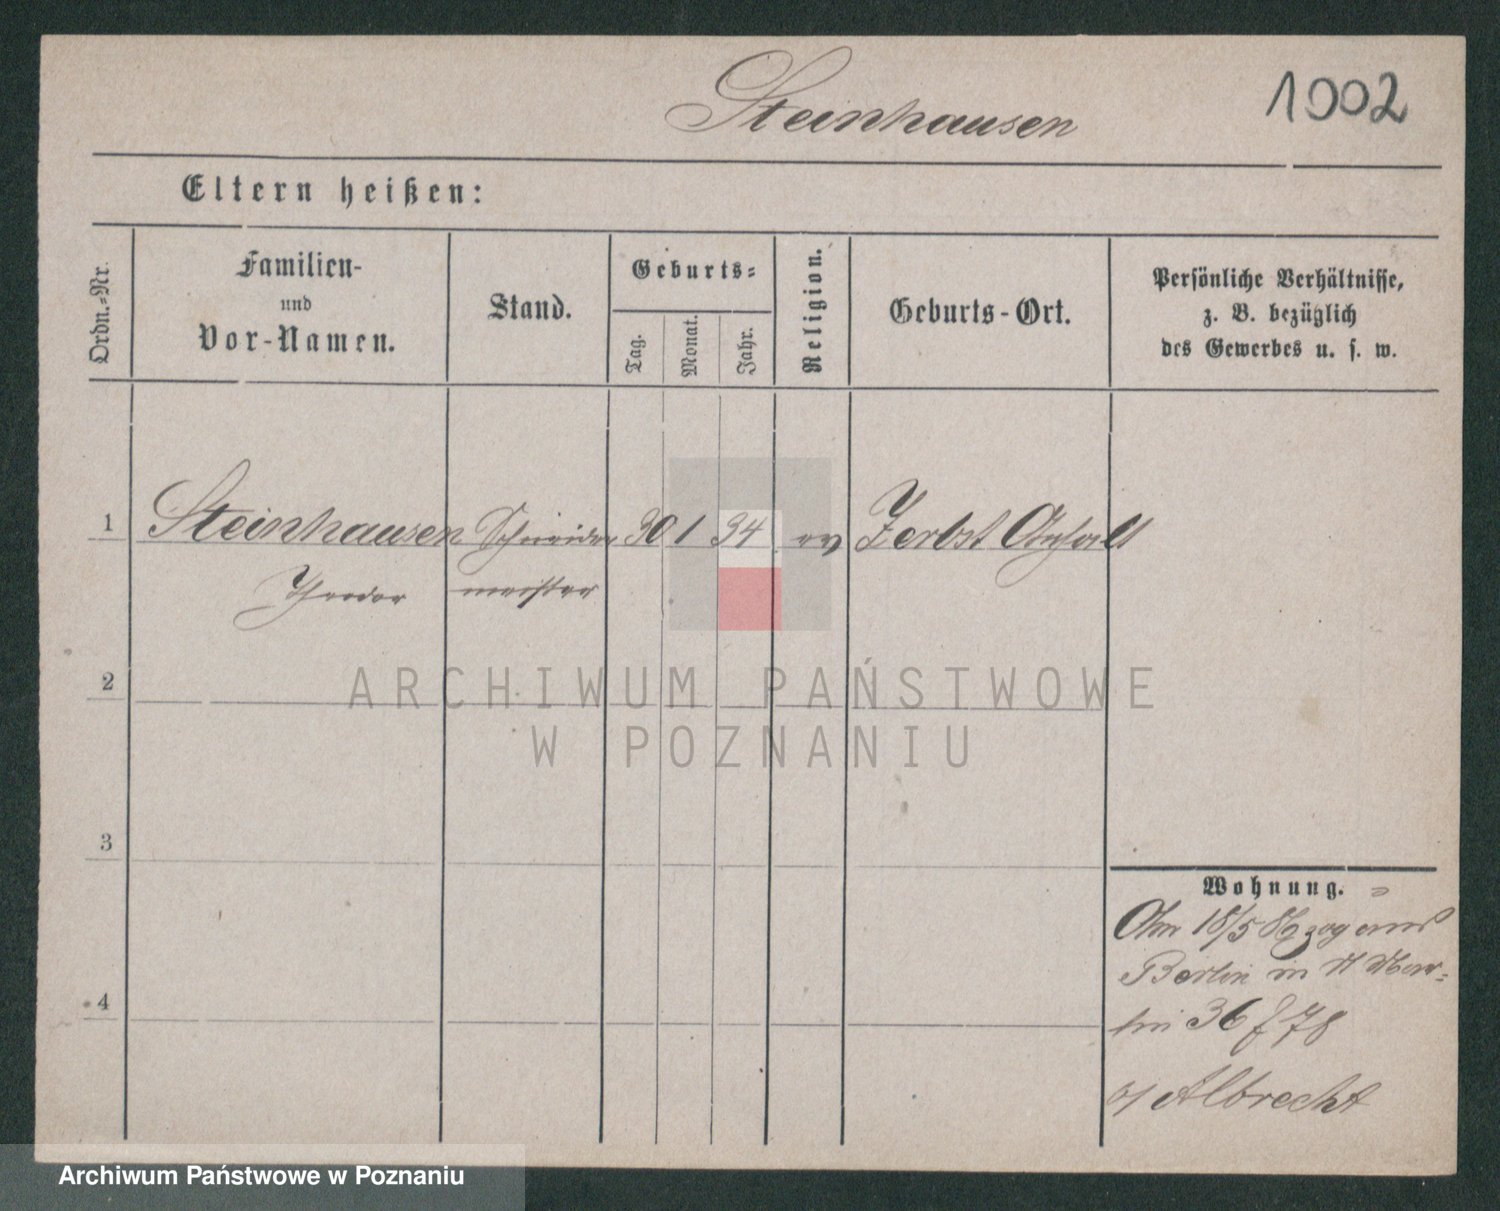 Steinhausen
1002
Eltern heißen:
Ordn.-Nr.
Familien-
und
Vor-Namen.
Stand.
Geburts-
Tag.
Monat.
Jahr.
Religion.
Geburts-Ort.
Persönliche Verhältnisse,
z. B. bezüglich
des Gewerbes u. s. w.
1 Steinhausen Schneider 30 1 34 ev Zerbst Anhalt
Theodor meister
2
3
4
Wohnung.
Am 18/5 zog aus
Berlin in St Mar-
tin 36 f 78
Albrecht
ARCHIWUM PAŃSTWOWE
W POZNANIU
Archiwum Państwowe w Poznaniu